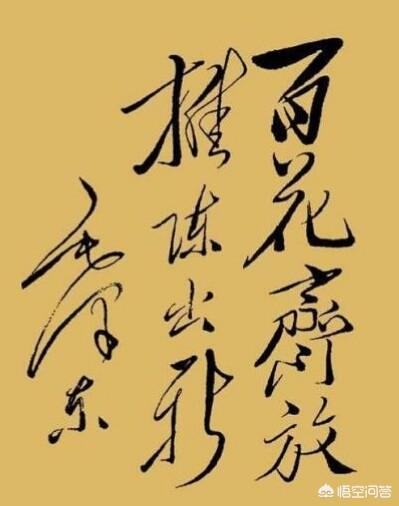 百花齊放
推陈出新
毛泽东
悟空问答